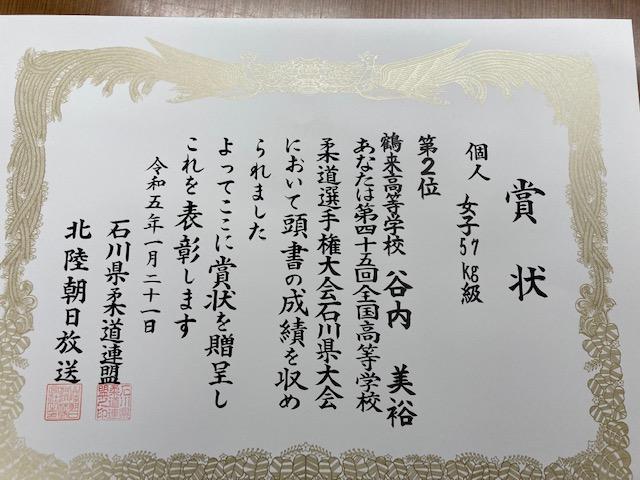 賞状
個人 女子57kg級
第2位
鶴来高等学校 谷内 美裕
あなたは第四十五回全国高等学校
柔道選手権大会石川県大会
において頭書の成績を収め
られました
よってここに賞状を贈呈し
これを表彰します
令和五年一月二十一日
石川県柔道連盟
北陸朝日放送